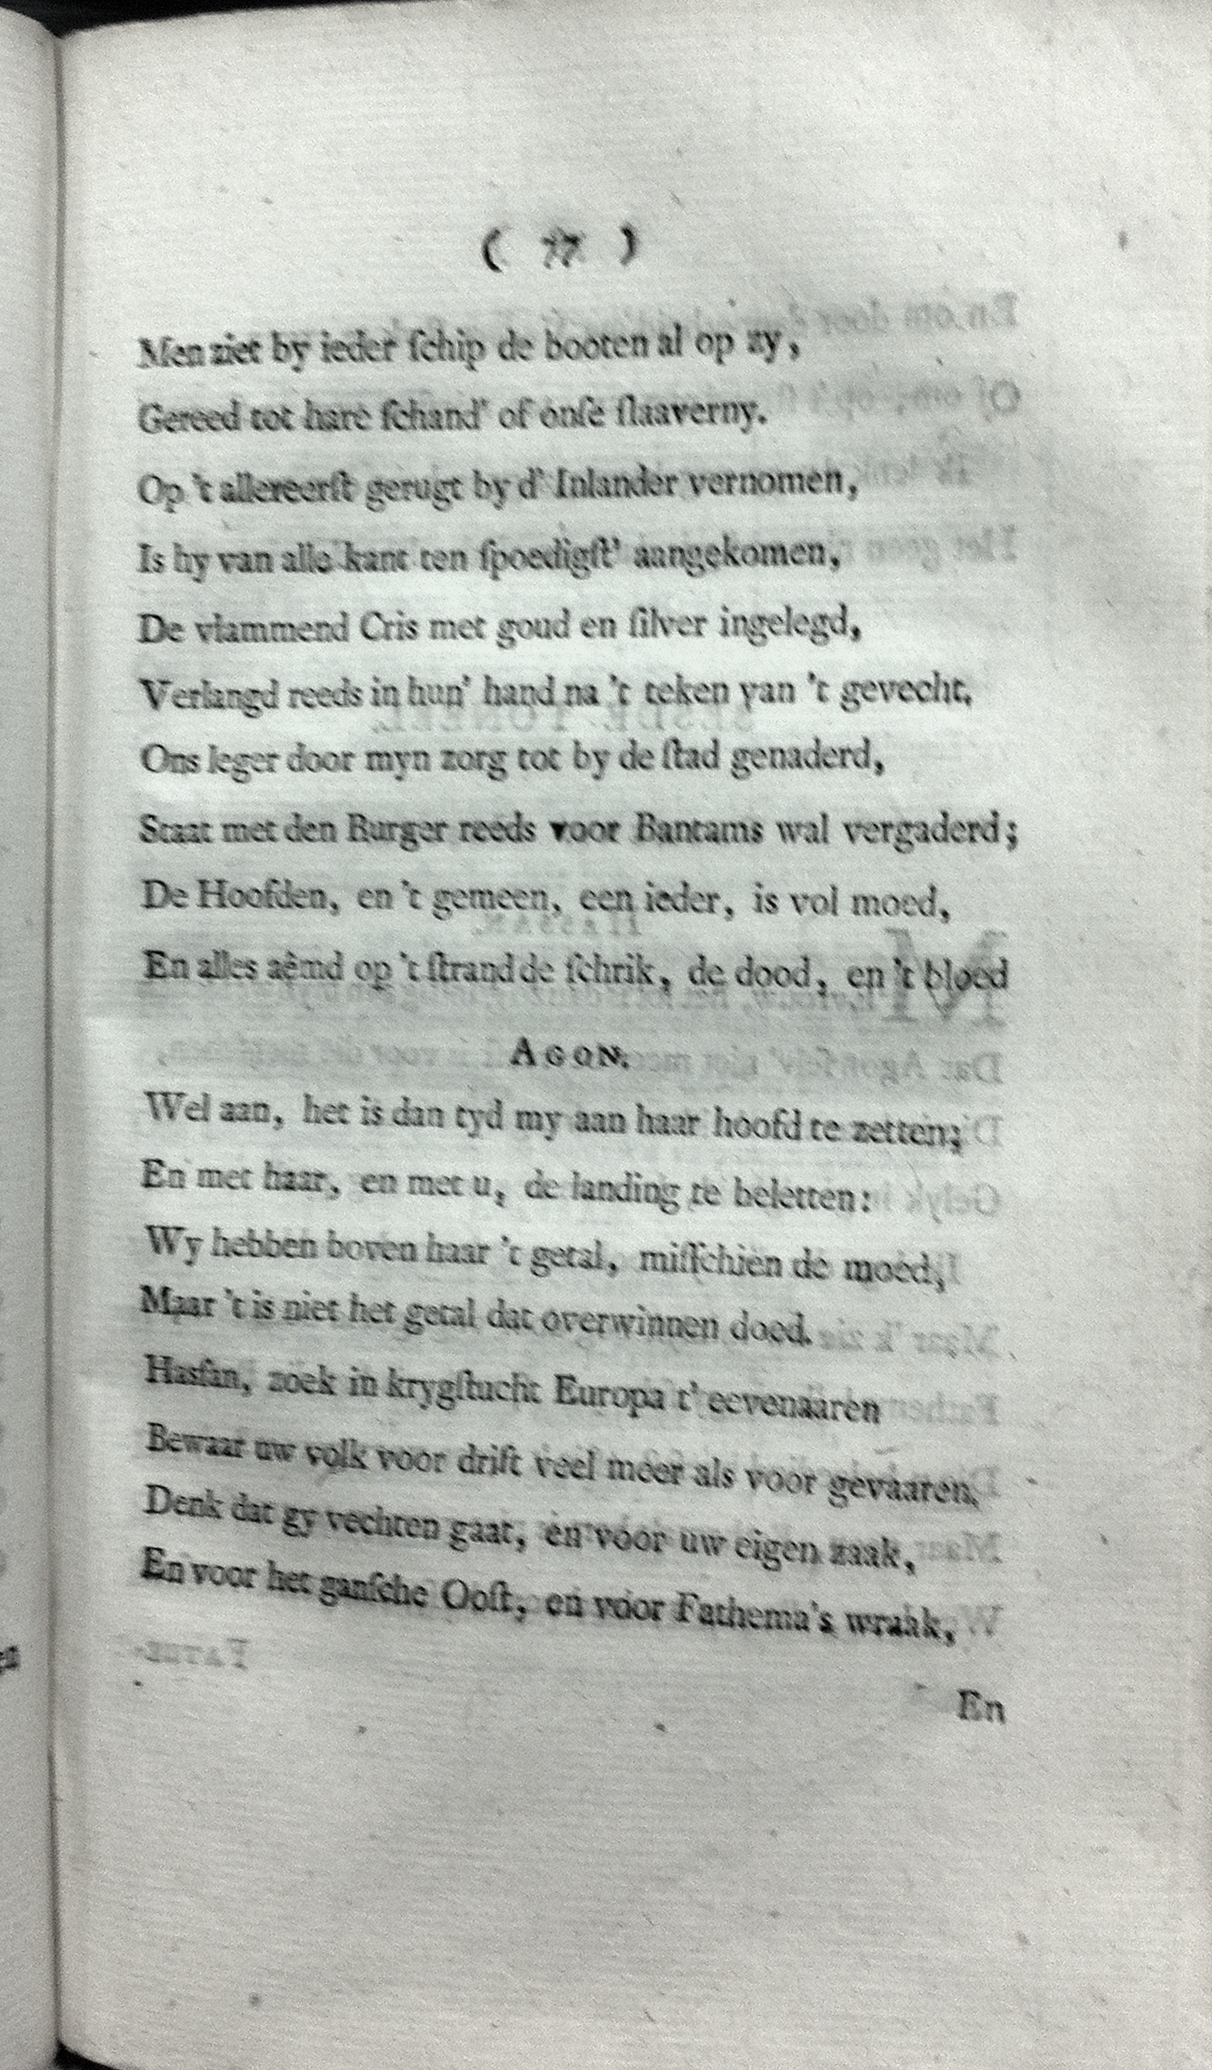 ( 77 )
Men ziet by ieder ſchip de booten al op zy,
Gereed tot hare ſchand' of onſe ſlaaverny.
Op 't allereerſt gerugt by d' Inlander vernomen,
Is hy van alle kant ten ſpoedigſt' aangekomen,
De vlammend Cris met goud en ſilver ingelegd,
Verlangd reeds in hun' hand na 't teken van 't gevecht,
Ons leger door myn zorg tot by de ſtad genaderd,
Staat met den Burger reeds voor Bantams wal vergaderd;
De Hoofden, en 't gemeen, een ieder, is vol moed,
En alles aêmd op 't ſtrand de ſchrik, de dood, en 't bloed
AGON.
Wel aan, het is dan tyd my aan haar hoofd te zetten;
En met haar, en met u, de landing te beletten:
Wy hebben boven haar 't getal, miſſchien de moed,
Maar 't is niet het getal dat overwinnen doed.
Hasſan, zoek in krygſtucht Europa t' eevenaaren
Bewaar uw volk voor drift veel meer als voor gevaaren,
Denk dat gy vechten gaat, en voor uw eigen zaak,
En voor het ganſche Ooſt, en voor Fathema's wraak,
En